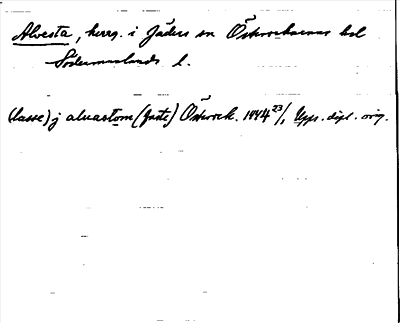 Alvesta, herrg. i Jäders sn Österrekarnes hd
Södermanlands l.
(lasse) j aluastom (Jäde) Österrek. 1444 23/1 Upps. dipl. orig.